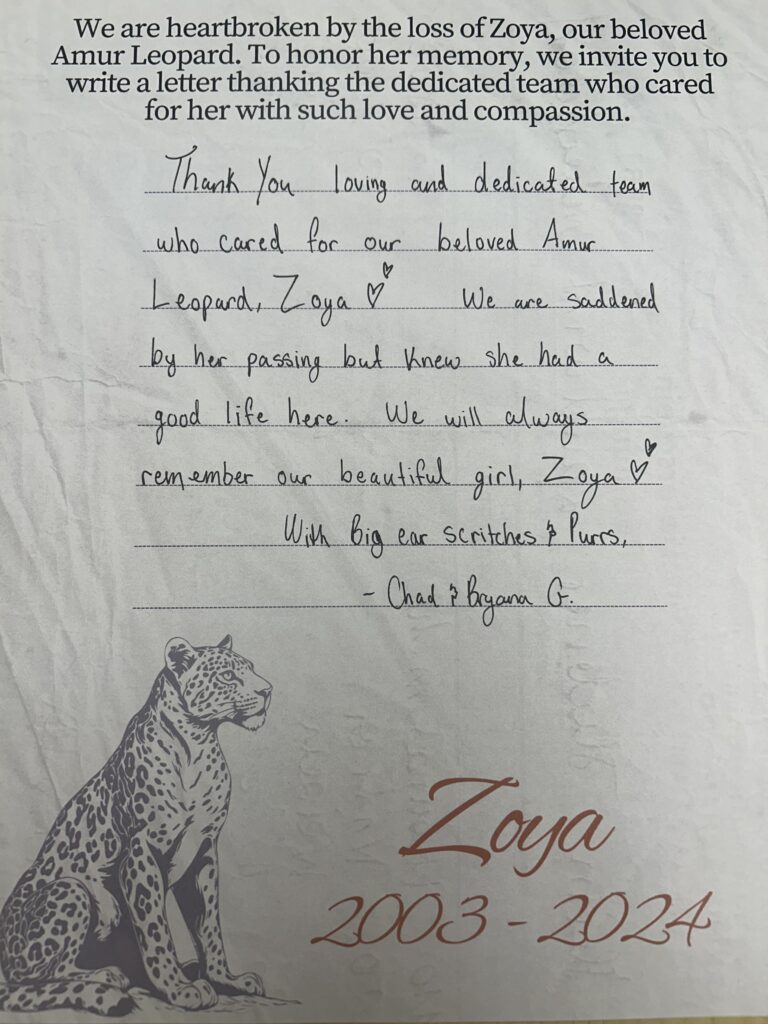 We are heartbroken by the loss of Zoya, our beloved
Amur Leopard. To honor her memory, we invite you to
write a letter thanking the dedicated team who cared
for her with such love and compassion.
Thank You loving and dedicated team
who cared for our beloved Amur
Leopard, Zoya ♡ We are saddened
by her passing but knew she had a
good life here. We will always
remember our beautiful girl, Zoya ♡
With Big ear scritches & Purrs,
- Chad & Bryana G.
Zoya
2003 - 2024